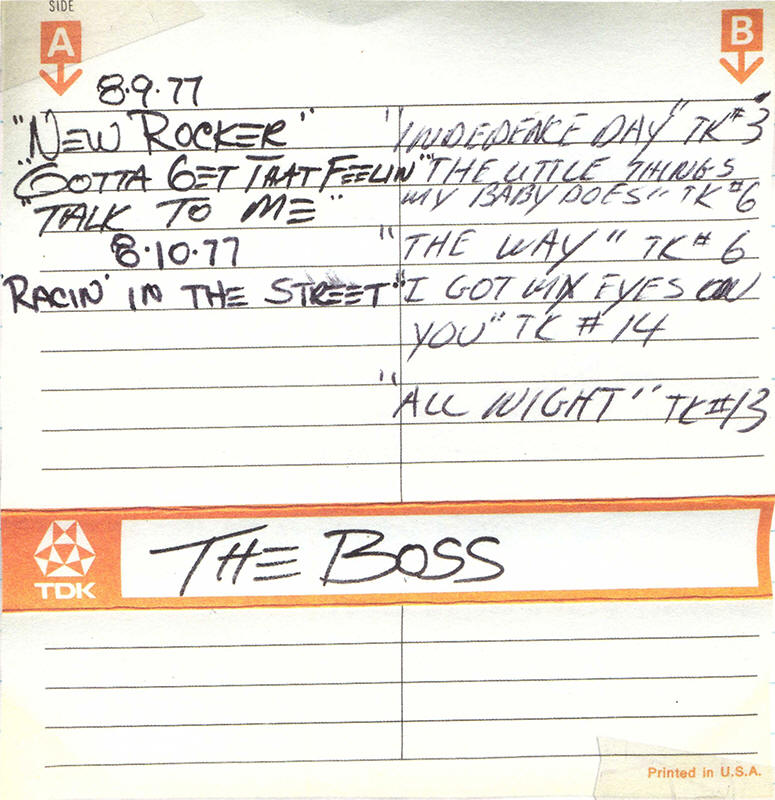 SIDE
A
B
8·9·77
"NEW ROCKER"
"GOTTA GET THAT FEELIN"
"TALK TO ME"
8·10·77
"RACIN' IN THE STREET"
"INDEDENCE DAY" TK #3
"THE LITTLE THINGS
MY BABY DOES" TK #6
"THE WAY" TK # 6
"I GOT MY EYES ON
YOU" TK # 14
"ALL NIGHT" TK #13
TDK
THE BOSS
Printed in U.S.A.